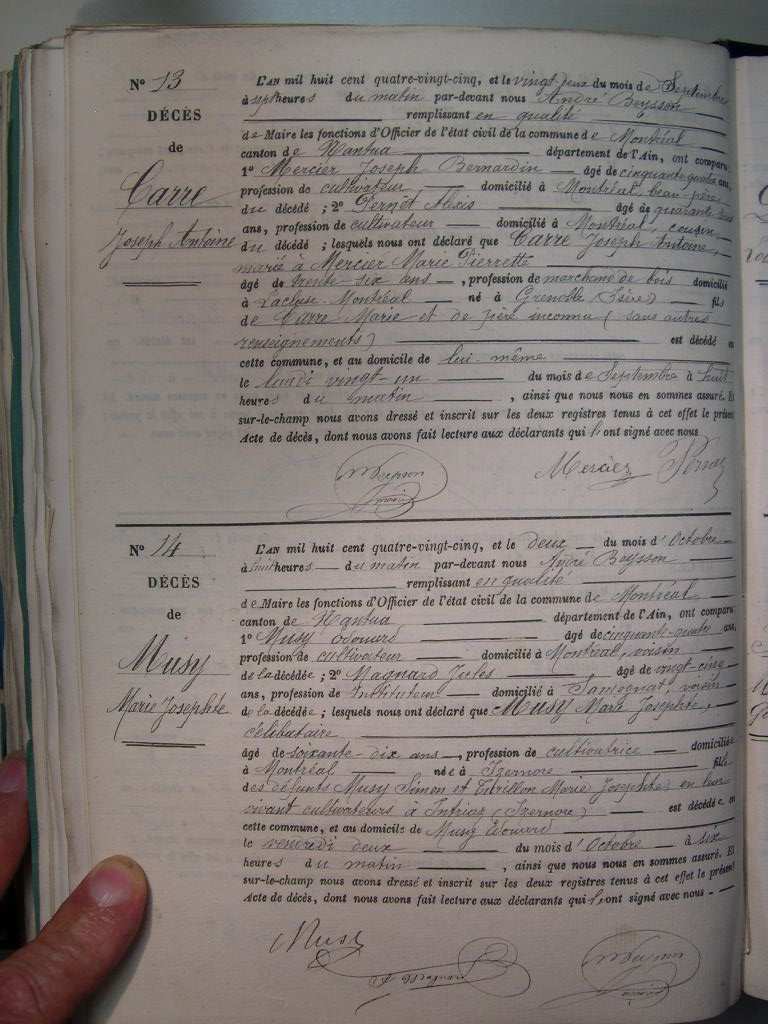 N° 13
DÉCÈS
de
Carre
Joseph Antoine
L'AN mil huit cent quatre-vingt-cinq, et le vingt deux du mois de Septembre
à sept heures du matin par-devant nous André Beysson
remplissant en qualité
de Maire les fonctions d'Officier de l'état civil de la commune de Montréal
canton de Nantua département de l'Ain, ont comparu
1° Mercier Joseph Bernardin âgé de cinquante quatre ans,
profession de cultivateur domicilié à Montréal, beau-père
du décédé ; 2° Pernet Alexis âgé de quarante
ans, profession de cultivateur domicilié à Montréal, cousin
du décédé ; lesquels nous ont déclaré que Carre Joseph Antoine,
marié à Mercier Marie Pierrette
âgé de trente-six ans, profession de marchand de bois domicilié
à Lacluse-Montréal né à Grenoble (Isère) fils
de Carre Marie et de père inconnu (sans autres
renseignements) est décédé en
cette commune, et au domicile de lui-même
le lundi vingt-un du mois de Septembre à huit
heures du matin, ainsi que nous nous en sommes assuré. Et
sur-le-champ nous avons dressé et inscrit sur les deux registres tenus à cet effet le présent
Acte de décès, dont nous avons fait lecture aux déclarants qui l'ont signé avec nous
Beysson
maire
Mercier
N° 14
DÉCÈS
de
Musy
Marie Josephte
L'AN mil huit cent quatre-vingt-cinq, et le deux du mois d'Octobre
à huit heures du matin par-devant nous André Beysson
remplissant en qualité
de Maire les fonctions d'Officier de l'état civil de la commune de Montréal
canton de Nantua département de l'Ain, ont comparu
1° Musy Edouard âgé de cinquante-quatre ans,
profession de cultivateur domicilié à Montréal, voisin
de la décédée ; 2° Magnard Jules âgé de vingt-cinq
ans, profession de Instituteur domicilié à voisin
de la décédée ; lesquels nous ont déclaré que Musy Marie Josephte,
célibataire
âgé de soixante-dix ans, profession de cultivatrice domiciliée
à Montréal née à Izernore fille
des défunts Musy Simon et Marie Josephte en leur
vivant cultivateurs à Intriaz (Izernore) est décédée en
cette commune, et au domicile de Musy Edouard
le vendredi deux du mois d'Octobre à six
heures du matin, ainsi que nous nous en sommes assuré. Et
sur-le-champ nous avons dressé et inscrit sur les deux registres tenus à cet effet le présent
Acte de décès, dont nous avons fait lecture aux déclarants qui l'ont signé avec nous
Musy
Beysson
maire